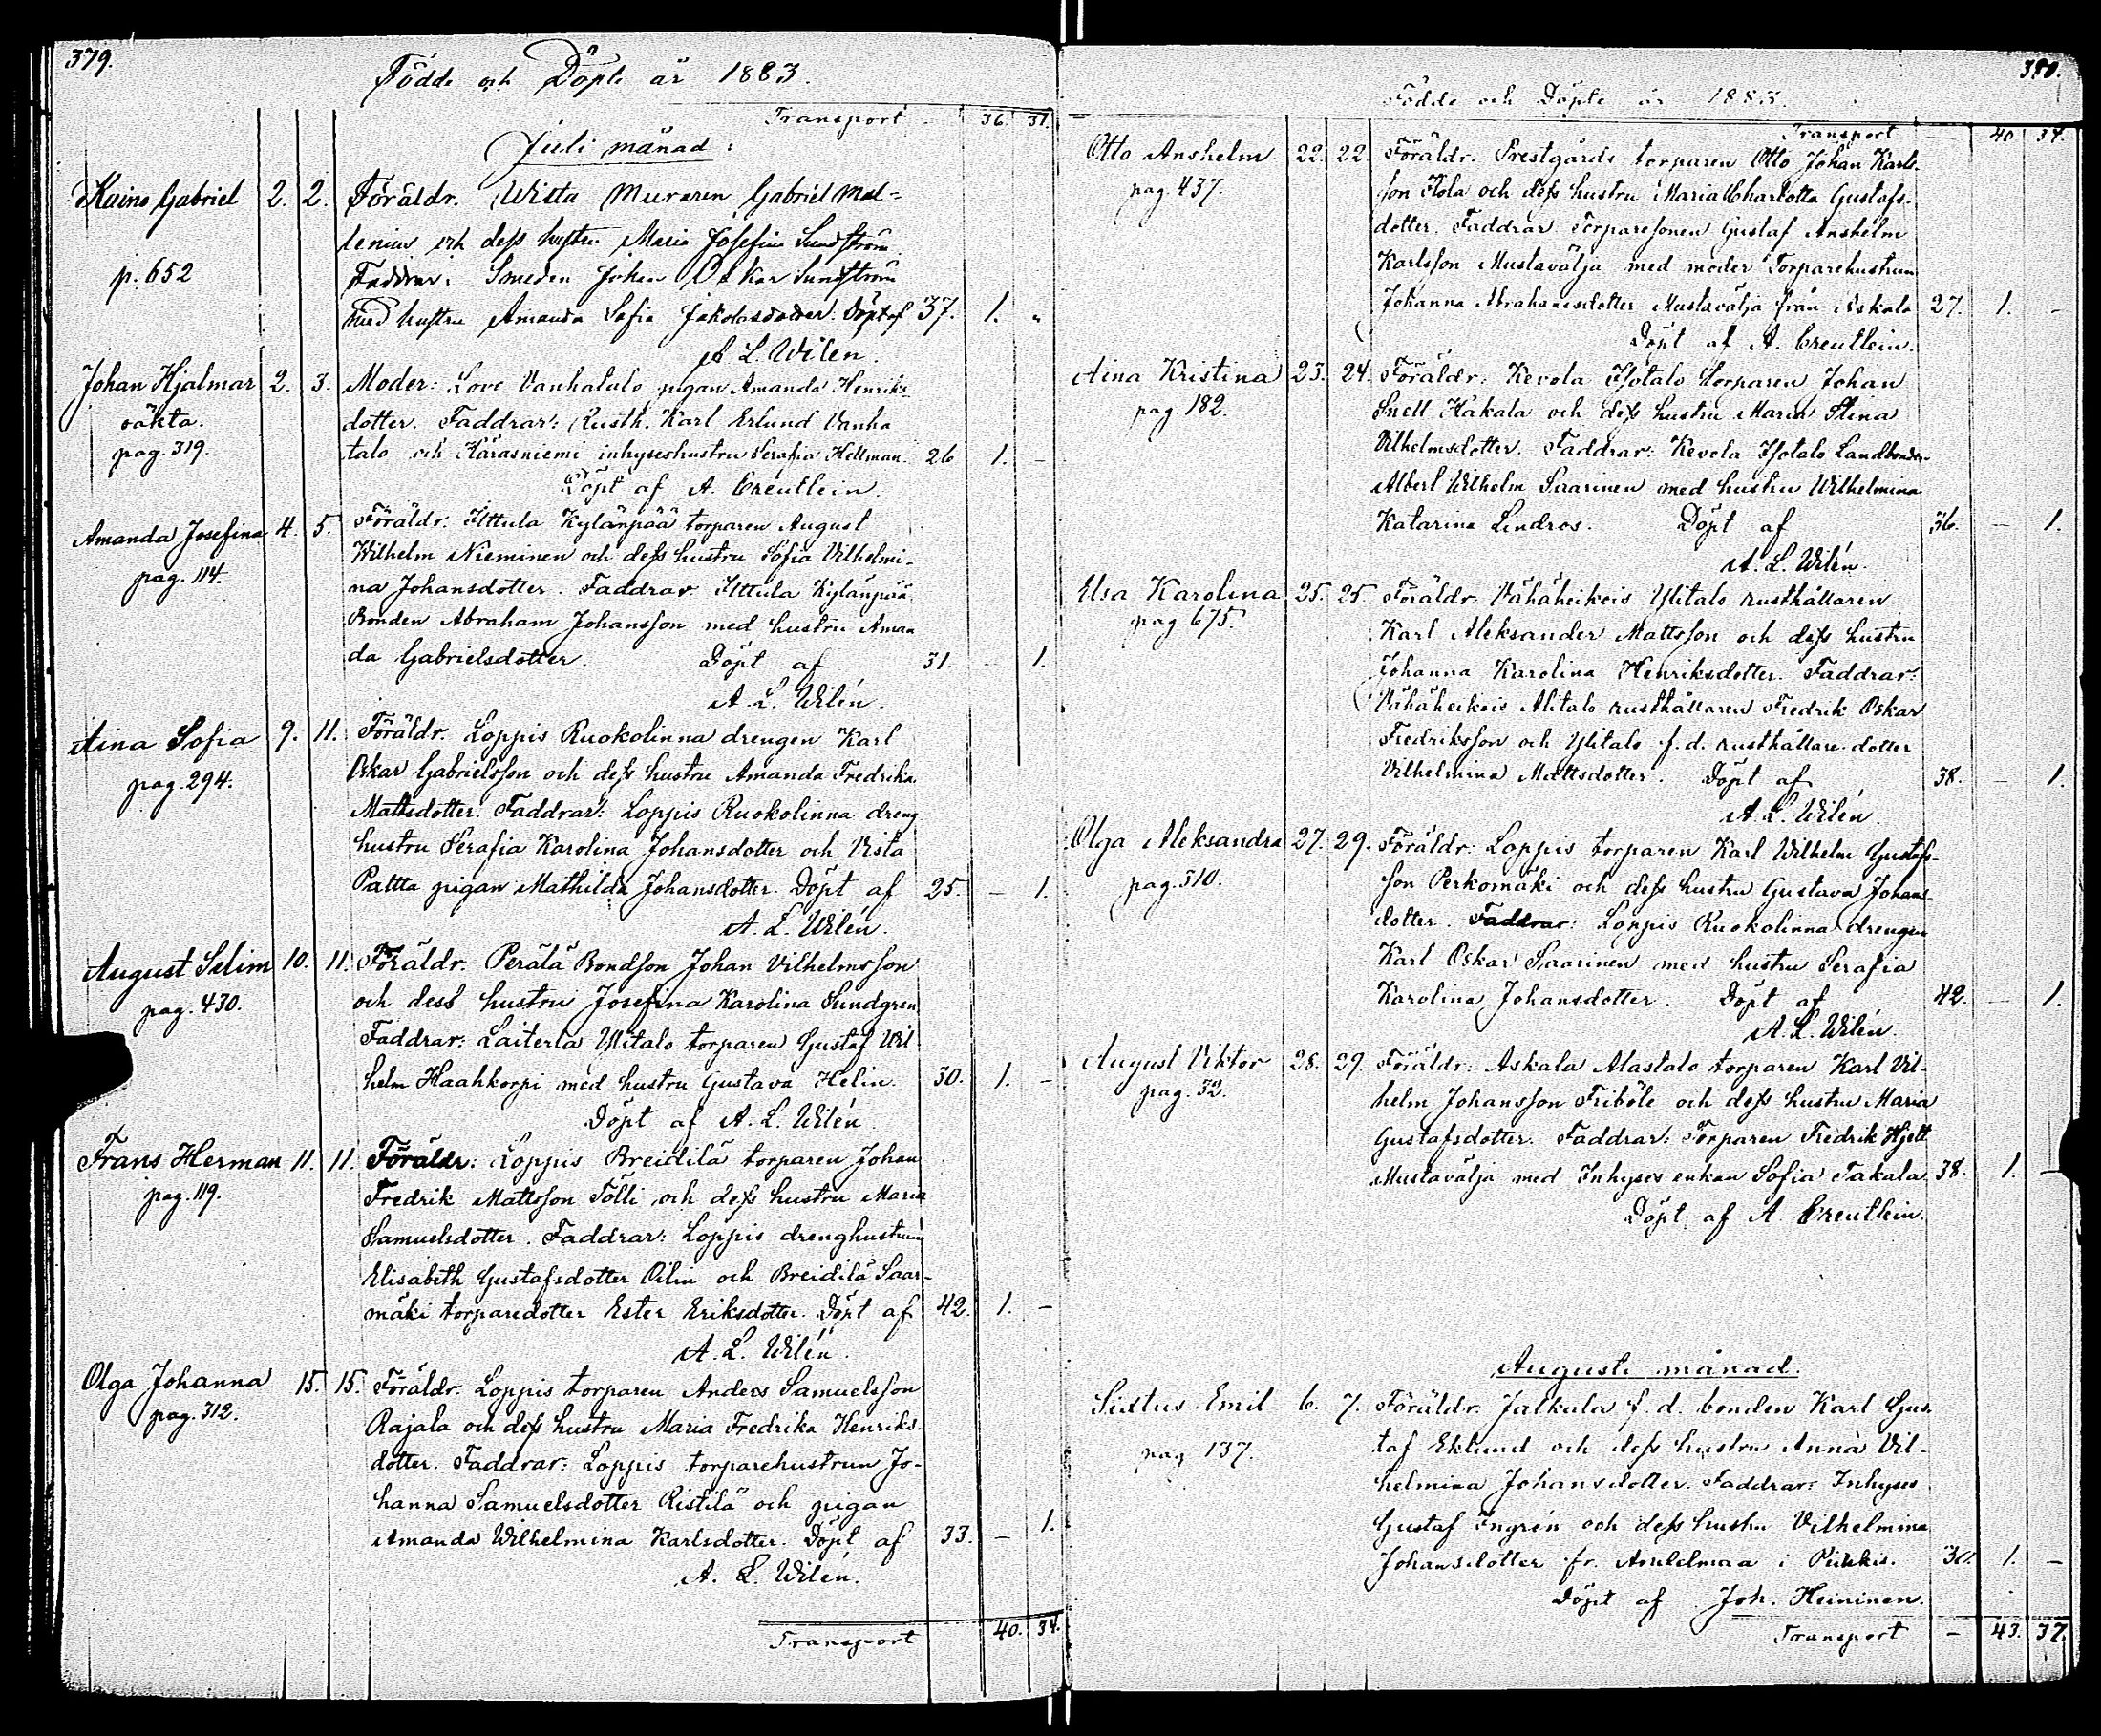 379.
Födde och Döpte år 1883.
Transport 36. 31.
Juli månad:
Kaino Gabriel 2. 2. Föräldr. Witta Muraren Gabriel Mal=
lenius och dess hustru Maria Josefina Sundström
p. 652 Faddrar: Smeden Johan Oskar Sundström
med hustru Amanda Sofia Jakobsdotter. Döpt af 37. 1. "
A L. Wilén.
Johan Hjalmar 2. 3. Moder: Love Vanhatalo pigan Amanda Henriks-
oäkta. dotter. Faddrar: Rusth. Karl Erlund Vanha
pag. 319. talo och Käräsniemi inhyseshustru Serafia Hellman. 26 1. -
Döpt af A. Creutlein.
Amanda Josefina 4. 5. Föräldr. Ilttula Kylänpää torparen August
Wilhelm Nieminen och dess hustru Sofia Vilhelmi-
pag. 114. na Johansdotter. Faddrar Ilttula Kylänpää
Bonden Abraham Johansson med hustru Aman
da Gabrielsdotter. Döpt af 31. - 1.
A. L. Wilén.
Aina Sofia 9. 11. Föräldr. Loppis Ruokolinna drengen Karl
pag. 294. Oskar Gabrielsson och dess hustru Amanda Fredrika
Mattsdotter. Faddrar: Loppis Ruokolinna dreng
hustru Serafia Karolina Johansdotter och Vista
Pattta pigan Mathilda Johansdotter. Döpt af 25. - 1.
A. L. Wilén.
August Selim 10. 11. Föräldr. Perälä Bondson Johan Vilhelmsson
pag. 430. och dess hustru Josefina Karolina Sundgren
Faddrar: Laiterla Ylitalo torparen Gustaf Wil
helm Haahkorpi med hustru Gustava Helin. 30. 1. -
Döpt af A. L. Wilén
Frans Herman 11. 11. Föräldr: Loppis Breidilä torparen Johan
pag. 119. Fredrik Mattsson Tölli och dess hustru Maria
Samuelsdotter. Faddrar: Loppis drenghustrun
Elisabeth Gustafsdotter Oilin och Breidilä Saar-
mäki torparedotter Ester Eriksdotter. Döpt af 42. 1. -
A. L. Wilén.
Olga Johanna 15. 15. Föräldr. Loppis torparen Anders Samuelsson
pag. 312. Rajala och dess hustru Maria Fredrika Henriks-
dotter. Faddrar: Loppis torparehustrun Jo-
hanna Samuelsdotter Ristilä och pigan
Amanda Wilhelmina Karlsdotter. Döpt af 33. - 1.
A. L. Wilén.
Transport 40. 34.
380.
Födde och Döpte år 1883.
Transport - 40 34.
Otto Anshelm. 22. 22 Föräldr. Prestgårds torparen Otto Johan Karls-
pag. 437. son Kola och dess hustru Maria Charlotta Gustafs-
dotter. Faddrar Torparesonen Gustaf Anshelm
Karlsson Mustavälja med moder Torparehustrun
Johanna Abrahamsdotter Mustavälja från Askala 27. 1. -
Döpt af A. Creutlein.
Aina Kristina 23. 24. Föräldr: Kevola Isotalo torparen Johan
pag. 182. Snell Kakala och dess hustru Maria Stina
Vilhelmsdotter. Faddrar: Kevola Isotalo Landbonden
Albert Wilhelm Saarinen med hustru Wilhelmina
Katarina Lindros. Döpt af 36. - 1.
A. L. Wilén.
Elsa Karolina 25. 25. Föräldr: Vähäheikois Ylitalo rusthållaren
pag 675. Karl Aleksander Mattsson och dess hustru
Johanna Karolina Henriksdotter. Faddrar:
Vähäheikois Alitalo rusthållaren Fredrik Oskar
Fredriksson och Ylitalo f.d. rusthållare dotter
Vilhelmina Mattsdotter. Döpt af 38. - 1.
A. L. Wilén.
Olga Aleksandra 27. 29. Föräldr: Loppis torparen Karl Wilhelm Gustafs-
pag. 310. son Perkomäki och dess hustru Gustava Johans-
dotter. Faddrar: Loppis Ruokolinna drengen
Karl Oskar Saarinen med hustru Serafia
Karolina Johansdotter. Döpt af 42. - 1.
A. L. Wilén.
August Viktor 28. 29. Föräldr: Askala Alastalo torparen Karl Vil-
pag. 32. helm Johansson Friböle och dess hustru Maria
Gustafsdotter. Faddrar: Torparen Fredrik Hjelt
Mustavälja med Inhyses enkan Sofia Takala 38. 1. -
Döpt af A. Creutlein.
Augusti månad.
Sixtus Emil 6. 7. Föräldr. Jalkala f.d. bonden Karl Gus-
taf Eklund och dess hustru Anna Vil-
pag 137. helmina Johansdotter. Faddrar: Inhyses
Gustaf Ingrén och dess hustru Vilhelmina
Johansdotter fr. i Piikkis. 30. 1. -
Döpt af Joh. Heininen.
Transport - 43. 37.